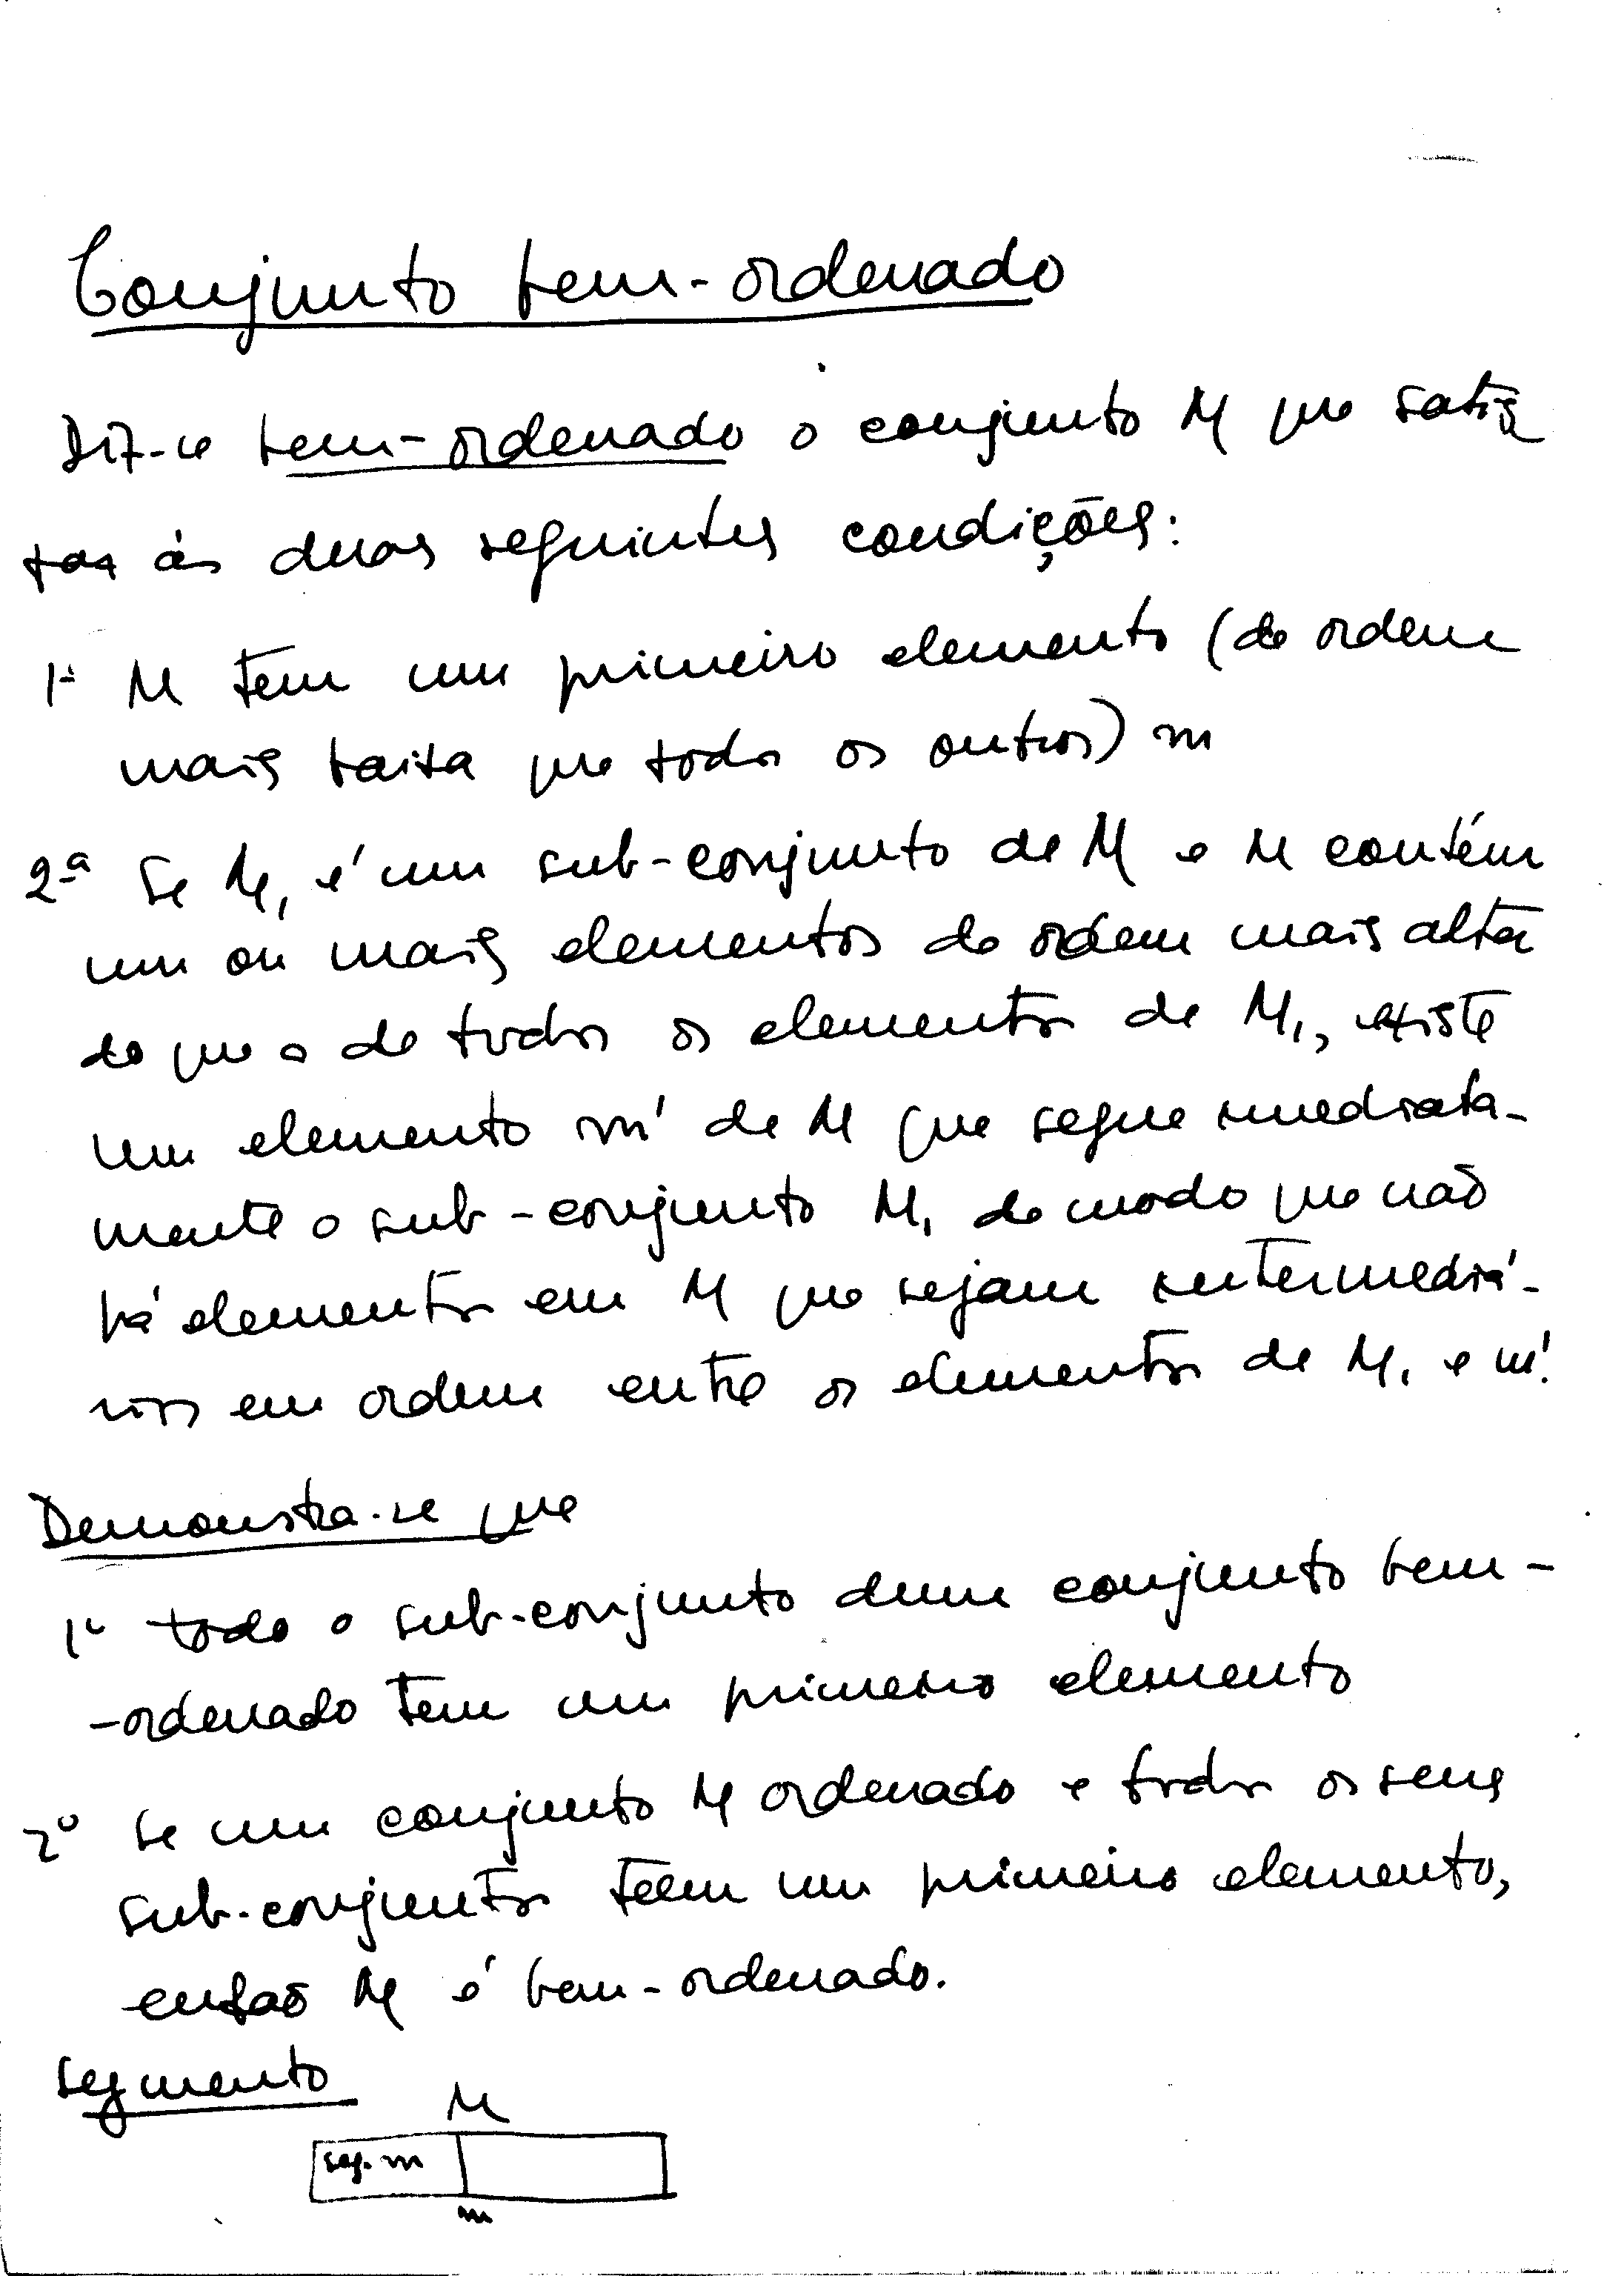 Conjunto bem-ordenado
Diz-se bem-ordenado o conjunto M que satis
faz às duas seguintes condições:
1ª M tem um primeiro elemento (de ordem
mais baixa que todos os outros) m
2ª Se M₁ é um sub-conjunto de M e M contém
um ou mais elementos de ordem mais alta
do que a de todos os elementos de M₁, existe
um elemento m' de M que segue imediata-
mente o sub-conjunto M₁ de modo que não
há elementos em M que sejam intermediá-
rios em ordem entre os elementos de M₁ e m'.
Demonstra-se que
1º todo o sub-conjunto dum conjunto bem-
-ordenado tem um primeiro elemento
2º Se um conjunto M ordenado e todos os seus
sub-conjuntos teem um primeiro elemento,
então M é bem-ordenado.
Segmento
M
seg. m
m